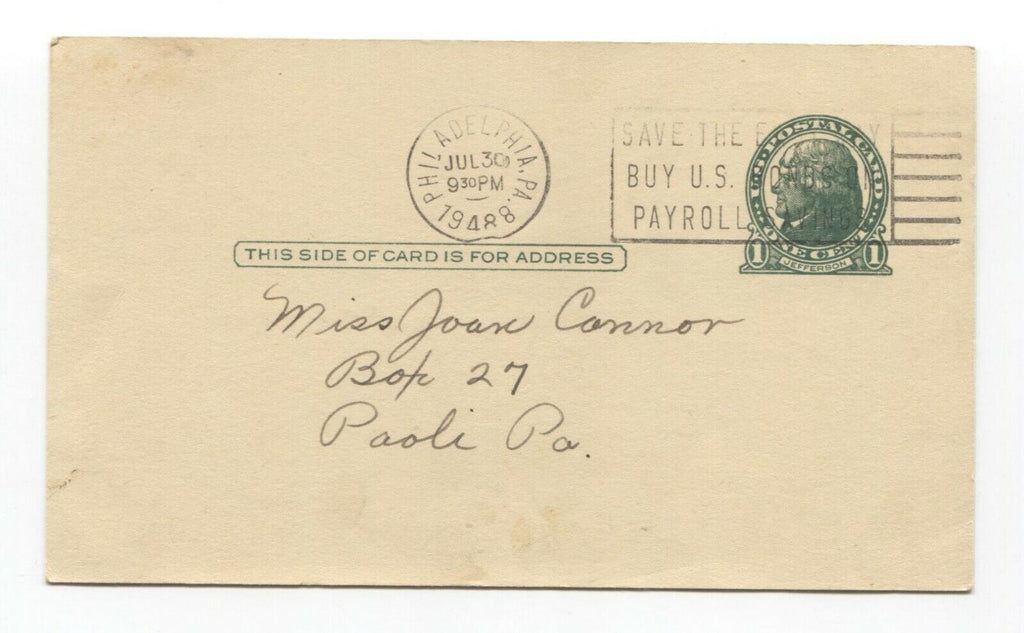 PHILADELPHIA, PA.
JUL 30
930 PM
1948 8
SAVE THE
BUY U.S. BONDS ON
PAYROLL SAVINGS
U.S. POSTAL CARD
ONE CENT
1 JEFFERSON 1
THIS SIDE OF CARD IS FOR ADDRESS
Miss Joan Connor
Box 27
Paoli Pa.